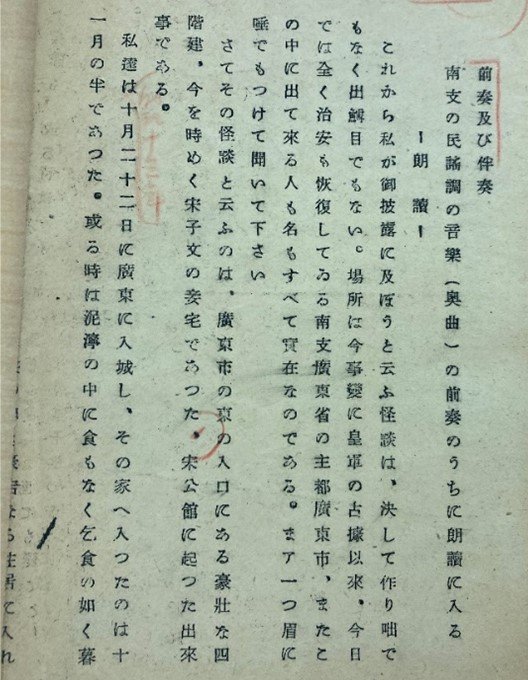 前奏及び伴奏
南支の民謠調の音樂(奥曲)の前奏のうちに朗讀に入る
ー朗讀ー
これから私が御披露に及ぼうと云ふ怪談は、決して作り咄で
もなく出鱈目でもない。場所は今事變に皇軍の占據以來、今日
では全く治安も恢復してゐる南支廣東省の主都廣東市、またこ
の中に出て來る人も名もすべて實在なのである。まア一つ眉に
唾でもつけて聞いて下さい
さてその怪談と云ふのは、廣東市の東の入口にある豪壯な四
階建、今を時めく宋子文の妾宅であつた、宋公館に起つた出來
事である。
私達は十月二十二日に廣東に入城し、その家へ入つたのは十
一月の半であつた。或る時は泥濘の中に食もなく乞食の如く暮